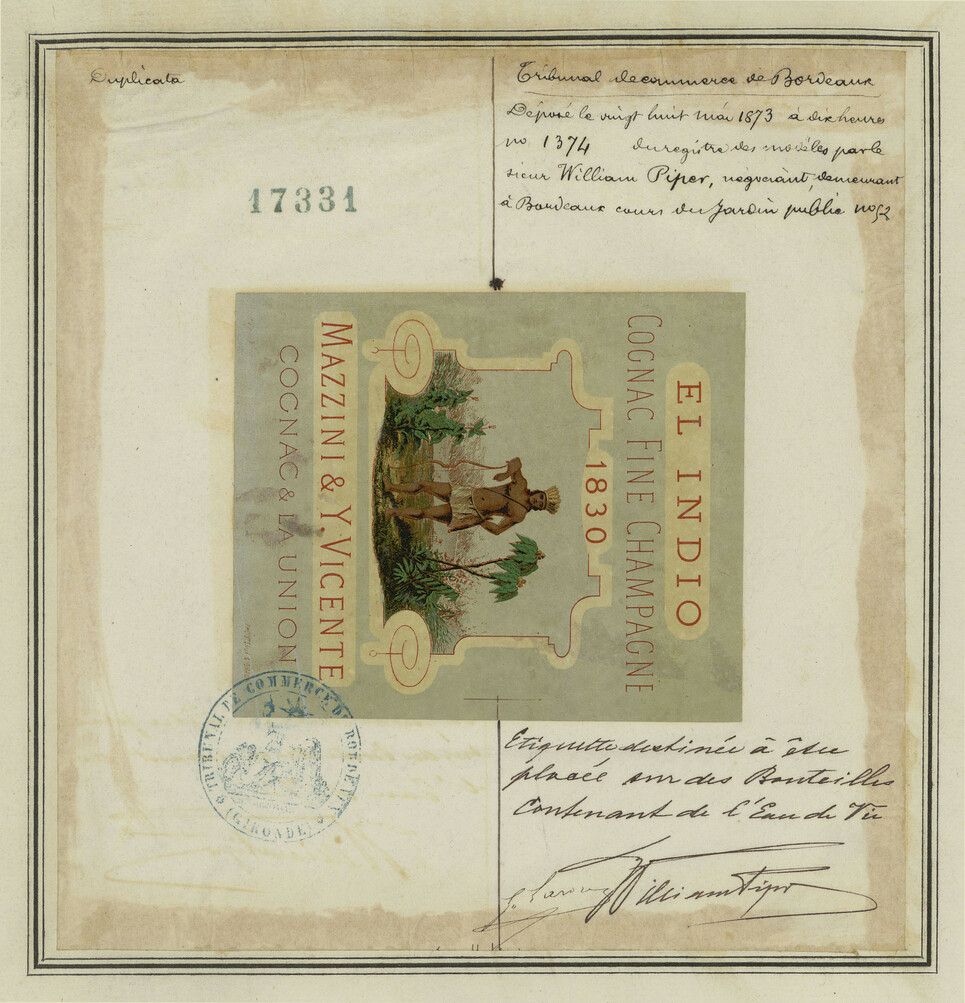 Duplicata
17331
Tribunal de commerce de Bordeaux
Déposé le vingt huit mai 1873 à dix heures
no 1374 du registre des modèles par le
sieur William Piper, négociant, demeurant
à Bordeaux cours du Jardin public no 52
EL INDIO
COGNAC FINE CHAMPAGNE
1830
MAZZINI & Y. VICENTE
COGNAC & LA UNION
TRIBUNAL DE COMMERCE DE BORDEAUX
(GIRONDE)
Etiquette destinée à être
placée sur des Bouteilles
Contenant de l'Eau de Vie
William Piper